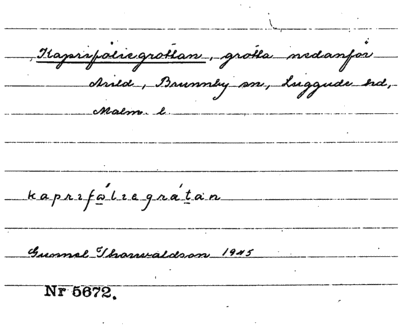 Kaprifoliegrottan, grotta nedanför
Arild, Brunnby sn, Luggude hd,
Malm. l.
kaprifòliegrátan
Gunnel Thorvaldson 1945
Nr 5672.